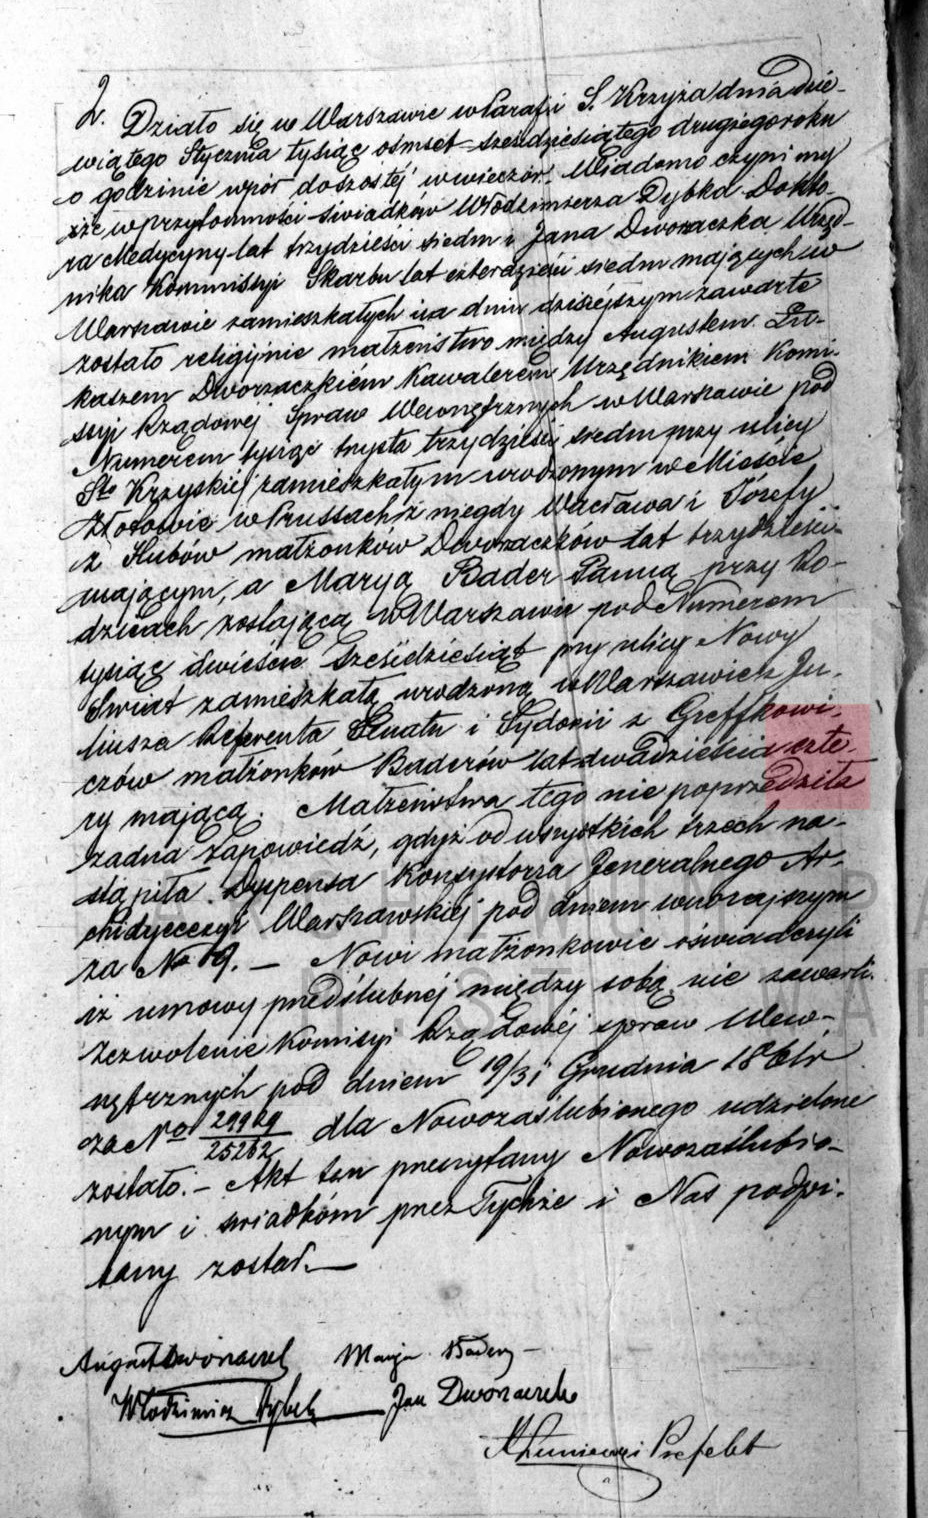 2. Działo się w Warszawie w Parafji S. Krzyża dnia dzie-
wiątego Stycznia tysiąc ośmset sześćdziesiątego drugiego roku
o godzinie wpół do szóstéj w wieczór. Wiadomo czynimy
iże w przytomności świadków Włodzimierza Dybka Dokto-
ra Medycyny lat trzydzieści siedm i Jana Dworzaczka Urzęd-
nika Kommissyi Skarbu lat czterdzieści siedm mających w
Warszawie zamieszkałych na dniu dzisiéjszym zawarte
zostało religijnie małżeństwo między Augustem Łu-
kaszem Dworzaczkiém Kawalerem Urzędnikiem Komi-
ssyi Rządowéj Spraw Wewnętrznych w Warszawie pod
Numerem tysiąc trzysta trzydzieści siedm przy ulicy
Sto Krzyskiéj zamieszkałym urodzonym w Mieście
Złotowie w Prussach z niegdy Wacława i Józefy
z Słubów małżonków Dworzaczków lat trzydzieści
mającym, a Maryą Bader Panną przy Ro-
dzicach zostającą w Warszawie pod Numerem
tysiąc dwieście sześćdziesiąt przy ulicy Nowy
Świat zamieszkałą urodzoną w Warszawie z Ju-
liusza Referenta Senatu i Sydonii z Greffkowi-
czów małżonków Baderów lat dwadzieścia czte-
ry mającą. Małżeństwa tego nie poprzedziła
żadna zapowiedź, gdyż od wszystkich trzech na-
stąpiła Dyspensa Konsystorza Jeneralnego Ar-
chidyecezyi Warszawskiéj pod dniem wczorajszym
za No 19. — Nowi małżonkowie oświadczyli
iż umowy przedślubnéj między sobą nie zawarli.
Zezwolenie Komisyi Rządowéj spraw Wew-
nętrznych pod dniem 19/31 Grudnia 1861 r
za No 29929/25262 dla Nowozaślubionego udzielone
zostało. — Akt ten przeczytany Nowozaślubio-
nym i świadkom przez Tychże i Nas podpi-
sany został. —
August Dworzaczek Marya Bader —
Włodzimierz Dybek Jan Dworzaczek
Prefekt